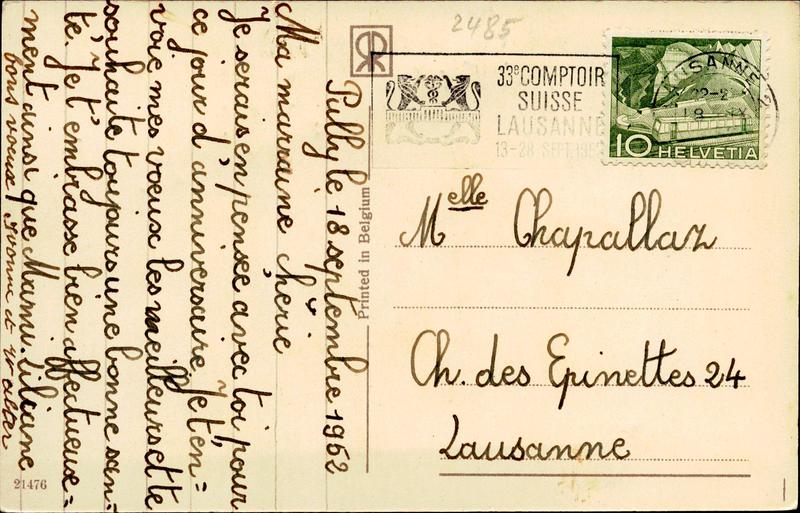 2485
33e COMPTOIR
SUISSE
LAUSANNE
13-28 SEPT. 1952
LAUSANNE
10 HELVETIA
Melle Chapallaz
Ch. des Epinettes 24
Lausanne
Printed in Belgium
Pully le 18 septembre 1952
Ma marraine chérie
Je serais en pensée avec toi pour
ce jour d'anniversaire. Je t'en=
voie mes vœux les meilleurs et te
souhaite toujours une bonne san=
té. Je t'embrasse bien affectueuse=
ment ainsi que Mami. Liliane
bons vœux Yvonne et Walter
21476